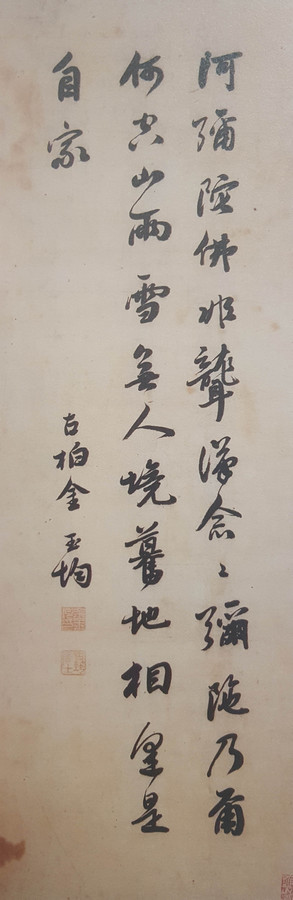 阿彌陀佛非聾漢念々彌陀乃爾
何空山雨雪無人境驀地相逢是
自家
古柏金玉均